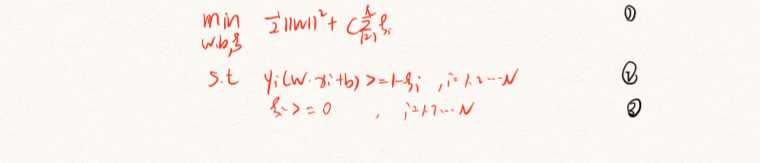 min 1/2 ||w||² + C Σ ξi ①
w,b,ξ i=1 N
s.t yi(w·xi+b) >= 1-ξi , i=1,2...N ②
ξi >= 0 , i=1,2...N ③